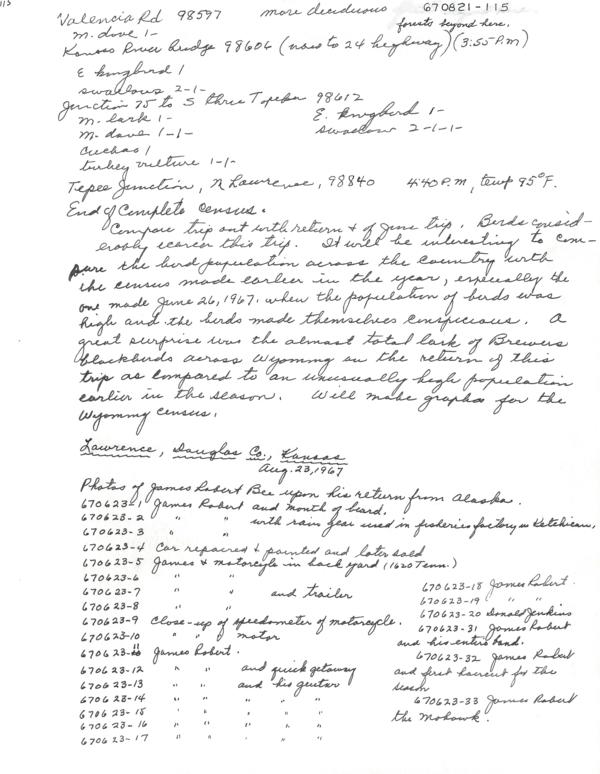 113
670821-115
Valencia Rd 98597 more deciduous forests beyond here.
m. dove 1-
Kansas River Bridge 98606 (now to 24 highway) (3:55 P.M)
E kingbird 1
swallows 2-1-
Junction 75 to S thru Topeka 98612
m. lark 1- E. kingbird 1-
m. dove 1-1- swallow 2-1-1-
cuckoo 1
turkey vulture 1-1-
Tepee Junction, N Lawrence, 98840 4:40 P.M, temp 95°F.
End of Complete Census.
Compare trip out with return & of June trip. Birds consid-
erably scarcer this trip. It will be interesting to com-
pare the bird population across the country with
the census made earlier in the year, especially the
one made June 26, 1967. when the population of birds was
high and the birds made themselves conspicuous. A
great surprise was the almost total lack of Brewers
blackbirds across Wyoming on the return of this
trip as compared to an unusually high population
earlier in the season. Will make graphs for the
Wyoming census.
Lawrence, Douglas Co., Kansas
Aug. 23, 1967
Photos of James Robert Bee upon his return from Alaska.
670623-1 James Robert and month of beard.
670623-2 " " with rain gear used in fisheries factory in Ketchican,
670623-3 " "
670623-4 Car repaired & painted and later sold
670623-5 James & motorcycle in back yard (1620 Tenn.)
670623-6 " "
670623-7 " " and trailer
670623-8 " "
670623-9 Close-up of speedometer of motorcycle.
670623-10 " " motor
670623-11 James Robert.
670623-12 " " and quick getaway
670623-13 " " and his guitar
670623-14 " " " " "
670623-15 " " " " "
670623-16 " " " " "
670623-17 " " " " "
670623-18 James Robert.
670623-19 " "
670623-20 Donald Jenkins
670623-31 James Robert
and his entire band.
670623-32 James Robert
and first haircut for the
season
670623-33 James Robert
the Mohawk.